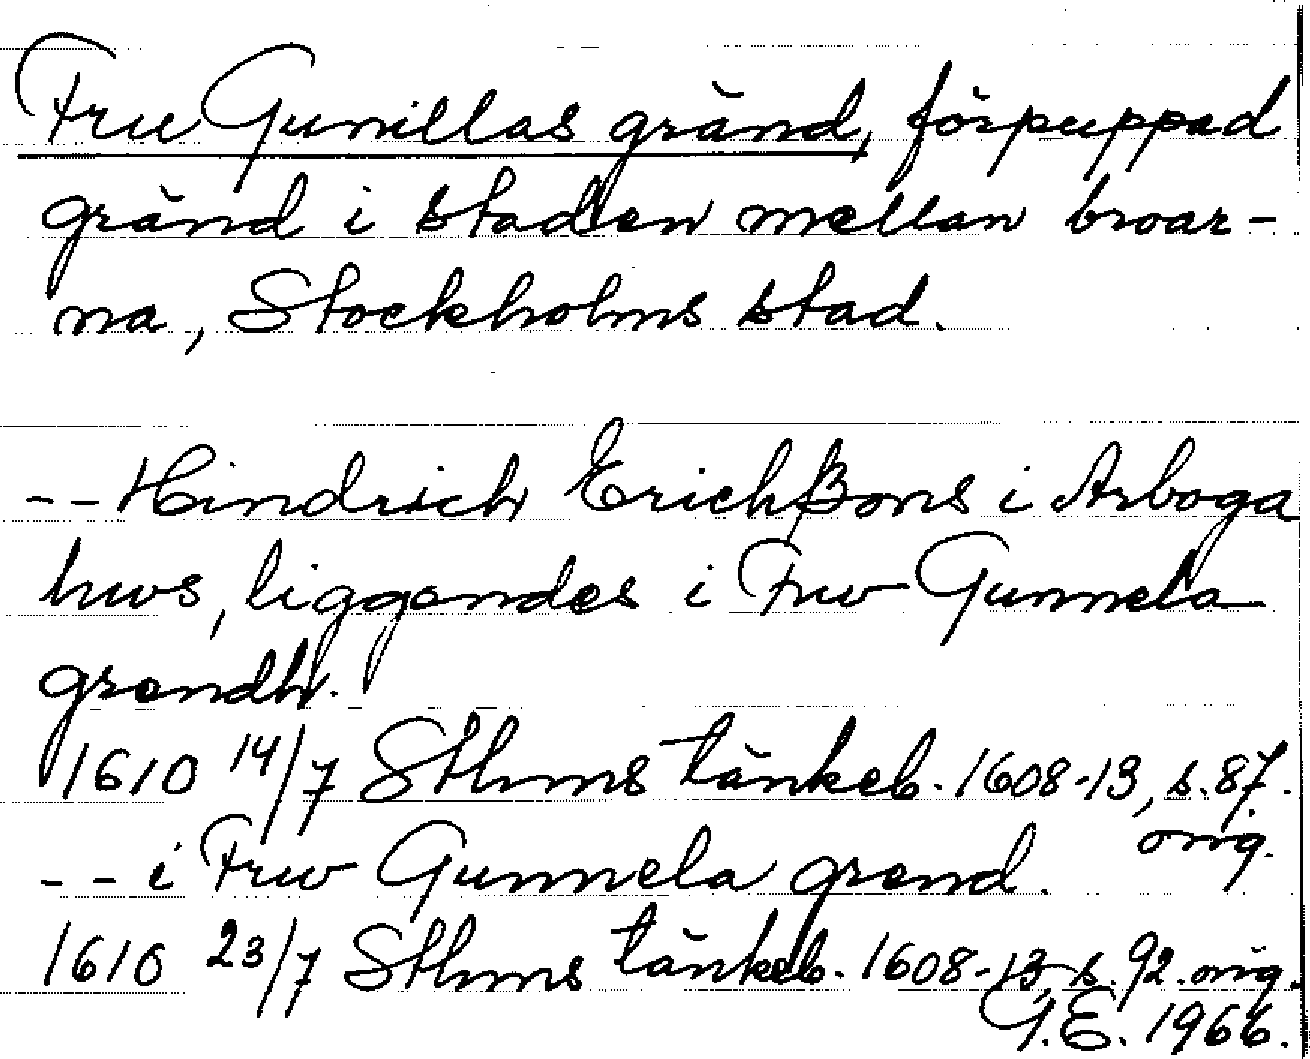 Fru Gunillas gränd, förpuppad
gränd i staden mellan broar-
na, Stockholms stad.
-- Hindrich Erichßons i Arboga
huus, liggendes i Frw Gunnela
grendh.
1610 14/7 Sthms tänkeb. 1608-13, s. 87.
orig.
-- i Frw Gunnela grend.
1610 23/7 Sthms tänkeb. 1608-13, s. 92. orig.
G.E. 1966.